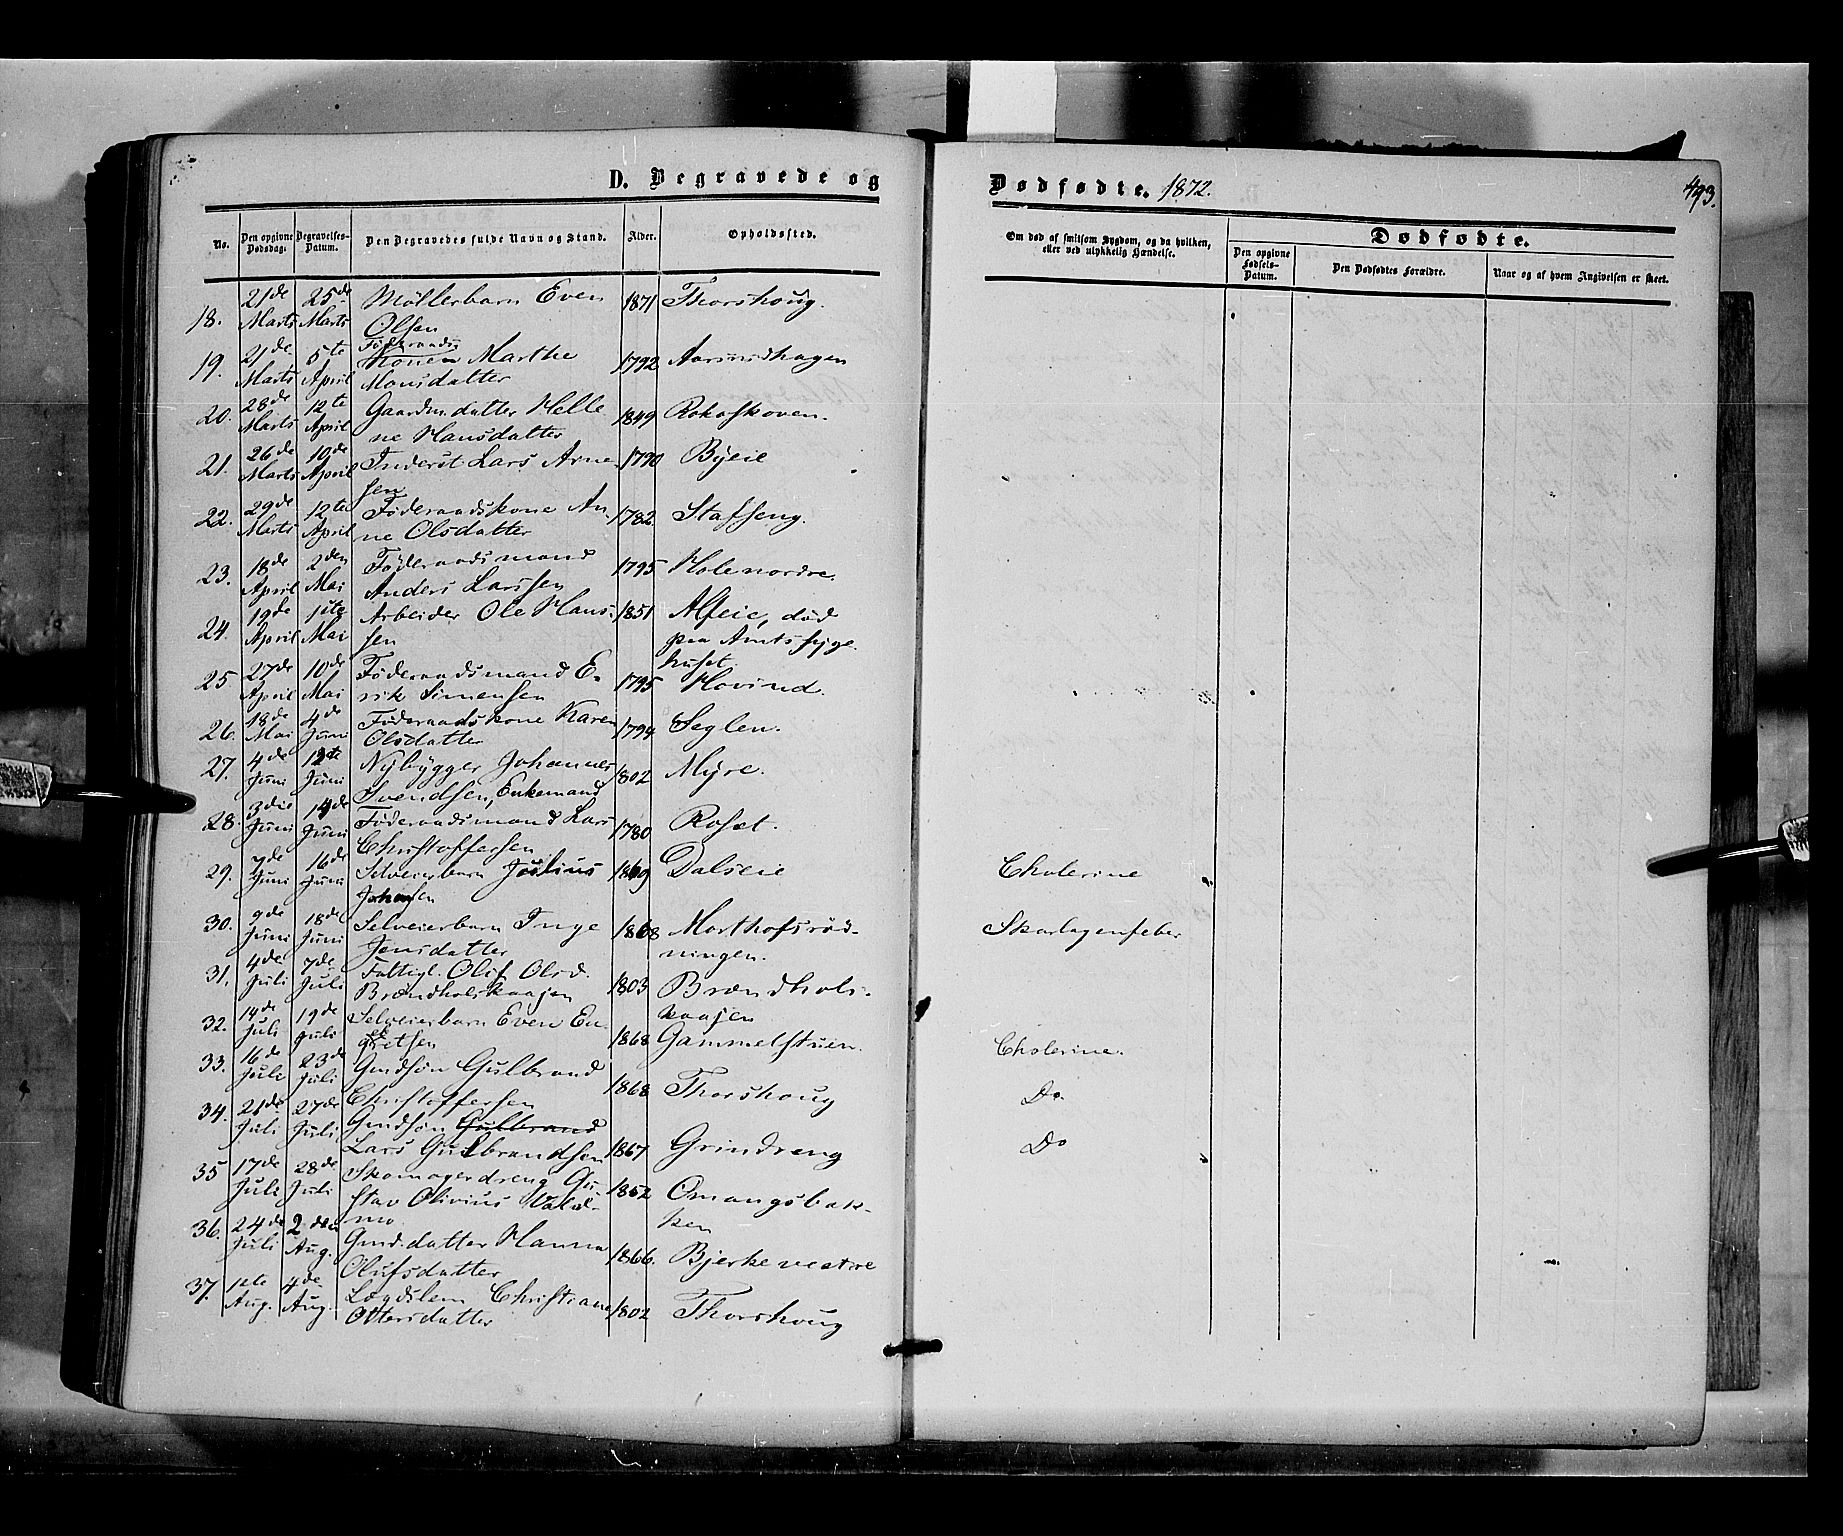 D. Begravede og
Dødfødte. 1872.
493.
No.
Den opgivne Dødsdag.
Begravelses-Datum.
Den Begravedes fulde Navn og Stand.
Alder.
Opholdssted.
Om død af smitsom Sygdom, og da hvilken, eller ved ulykkelig Hændelse.
Dødfødte.
Den opgivne Fødsels-Datum.
Den Dødfødtes Forældre.
Naar og af hvem Angivelsen er skeet.
18. 21de Marts 25de Marts Møllerbarn Even Olsen 1871 Thorshoug.
19. 21de Marts 5te April Føderaads Konen Marthe Monsdatter 1792
20. 28de Marts 12te April Gaardm. datter Helle
ne Hansdatter 1849 Rokoskoven.
21. 26de Marts 10de April Inderst Lars Arne
sen 1790 Byeie
22. 29de Marts 12te April Føderaadskone An-
ne Olsdatter 1782 Stafseng.
23. 18de April 2den Mai Føderaadsmand
Anders Larssen 1795 Hole nordre.
24. 19de April 1ste Mai Arbeider Ole Hans-
sen 1851 Alfeie, død
paa Amtssyge-
huset.
25 27de April 10de Mai Føderaadsmand E-
rik Simensen 1795 Hovind.
26. 18de Mai 4de Juni Føderaadskone Karen
Olsdatter 1794 Seglen.
27. 4de Juni 12te Juni Nybygger Johannes
Svendsen, Enkemand 1802 Myre.
28. 3die Juni 14de Juni Føderaadsmand Lars
Christoffersen 1780 Roset.
29. 7de Juni 16de Juni Selveierbarn Julius
Johansen 1869 Dalseie Cholerine
30. 9de Juni 18de Juni Selveierbarn Inge
Jensdatter 1868 Morthofsrød-
ningen. Skarlagenfeber
31. 4de Juli 7de Juli Fattigl. Olif Olsd.
Brændholskaajen 1803 Brændhols-
kaajen
32. 14de Juli 19de Juli Selveierbarn Even En-
gretsen 1868 Gammelstuen. Cholerine.
33. 16de Juli 23de Juli Gmdsøn Gulbrand
Christoffersen 1868 Thorshoug Do.
34. 21de Juli 27de Juli Gmdsøn Gulbrand
Lars Gulbrandsen 1867 Grindreng Do
35 17de Juli 28de Juli Skomagerdreng Gu-
stav Olivius
mo 1852 Omangsbak-
ken
36. 24de Juli 2den Aug. Gmd. datter Hanna
Olufsdatter 1866. Bjerke vestre
37. 1ste Aug. 4de Aug. Lægdslem Christiane
Ottersdatter 1802 Thorshoug